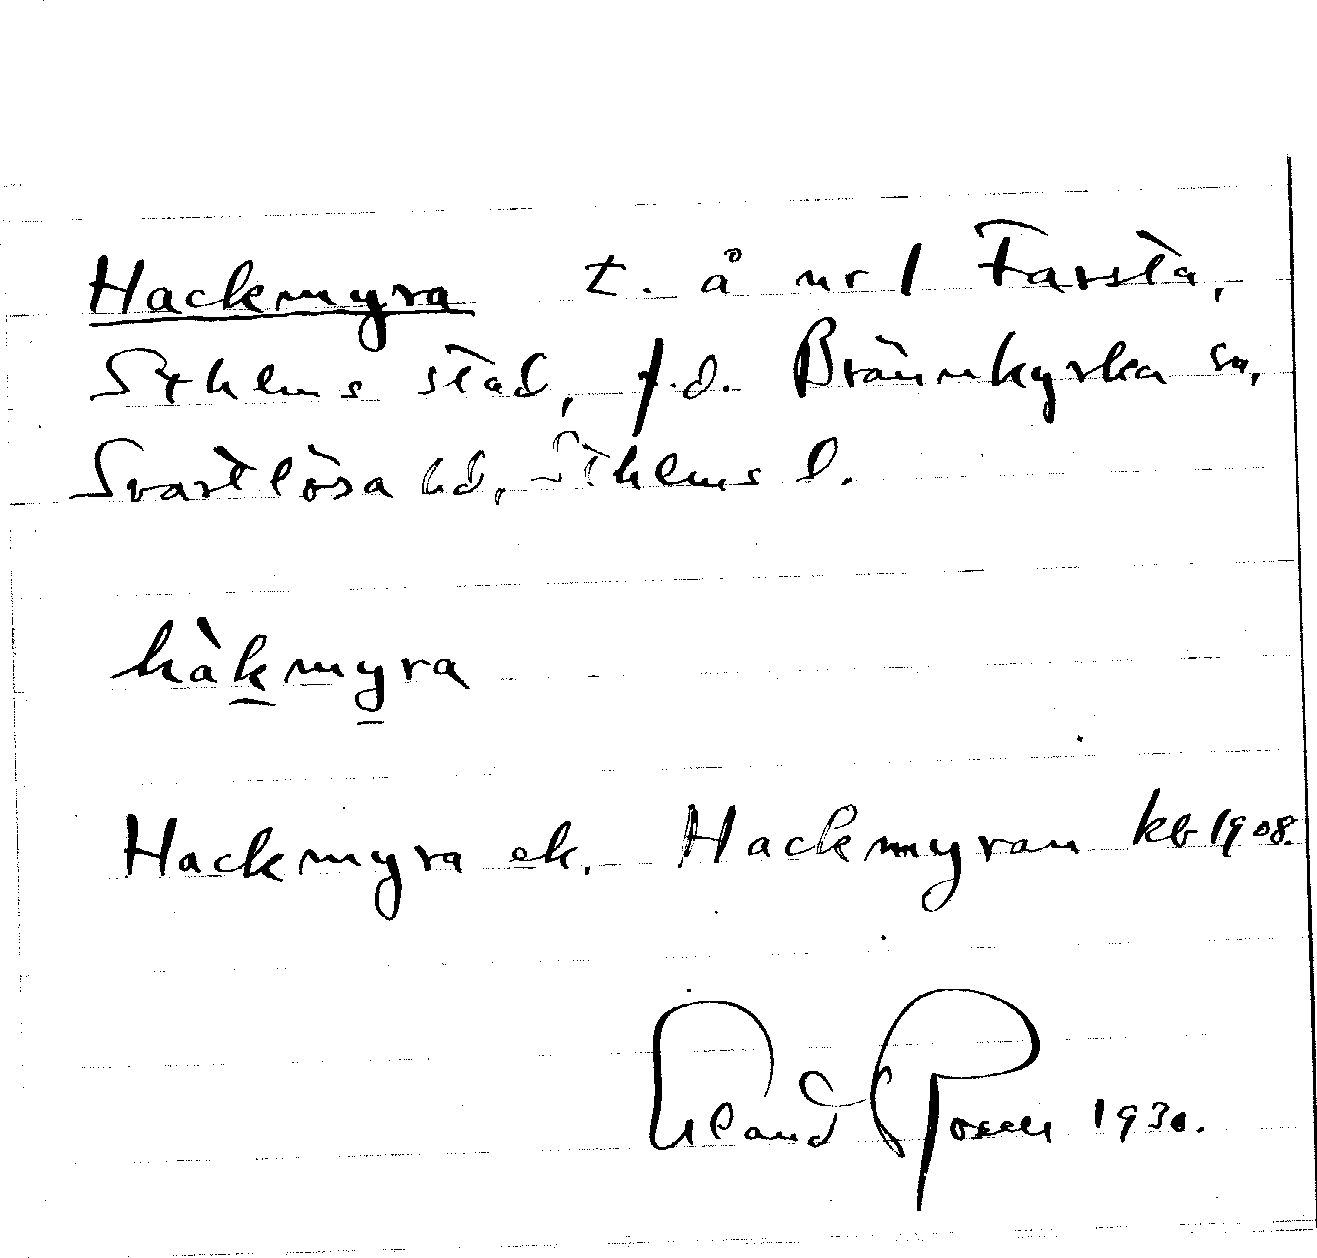 Hackmyra t. å nr 1 Farsta,
Sthlms stad, f.d. Brännkyrka sn,
Svartlösa hd, Sthlms l.
hàkmyra
Hackmyra ek. Hackmyran kb 1908.
Erland Rosell 1930.